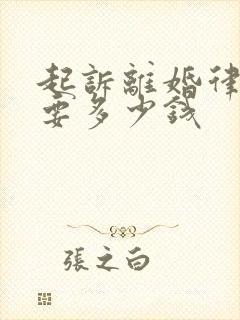 起訴離婚律
要多少錢
張之白